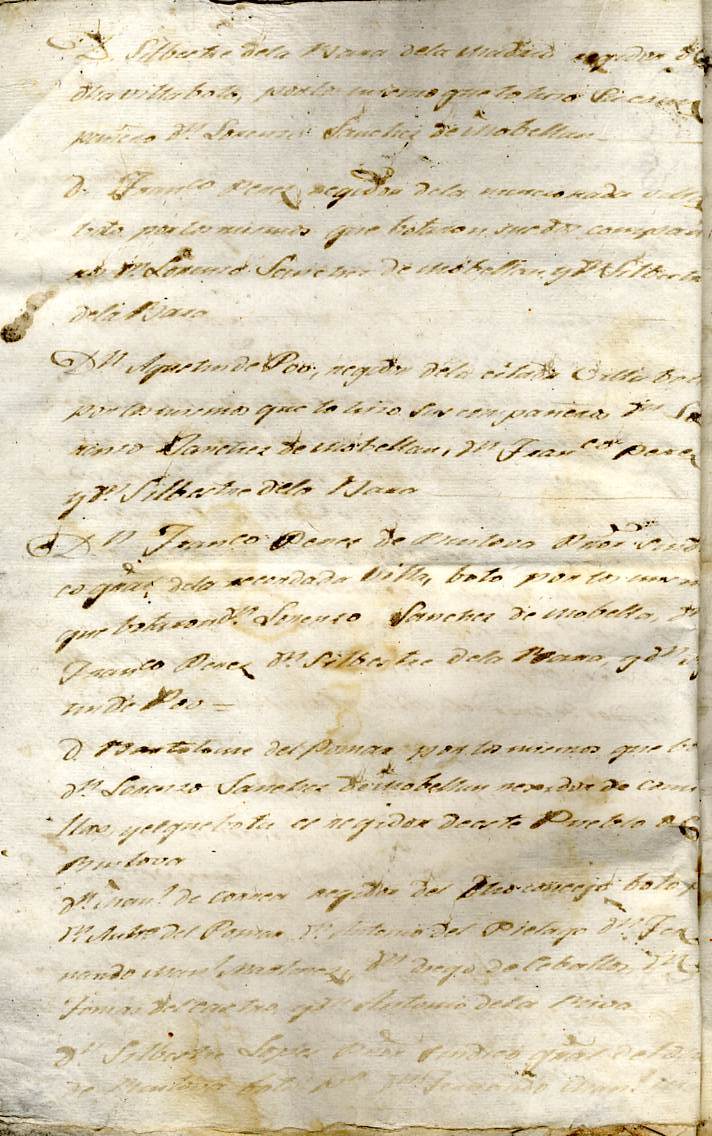 D. Silbestre dela Bara dela Madrid regidor de
dha villa boto, por los mismos que lo hizo su com
pañero Dn. Lorenzo Sanchez de Mobellan
D. Franco Perez regidor dela mencionada villa
boto por los mismos que botaron, sus dos compañe
ros Dn. Lorenzo Sanchez de Mobellan, y Dn. Silbestre
dela Bara
Dn Agustin de Poo, regidor dela citada Villa boto
por los mismos que lo hizo sus compañeros Dn Lo
renzo Sanchez de Mobellan, Dn Franco Perez
y Dn. Silbestre dela Bara
Dn Franco Perez de Bustova Pror Sindi
co gral dela recordada Villa, boto por los mismos
que botaron Dn. Lorenzo Sanchez de Mobella, Dn
Franco Perez Dn Silbestre dela Bara, y Dn Ag
tin de Poo =
D. Bartolome del Pomar por los mismos que bo
Dn Lorenzo Sanchez de Mobellan rexidor de Comi
llas, y el que bota es regidor de este Pueblo de
Bustova
Dn. Manl. de Correa regidor del dho concejo boto p
Dn. del Pomar Dn. Antonio del Pielago Dn. Fer
nando Manl Dn diego de Ceballos, Dn
Tomas del Castro, y Dn Antonio dela Riva
Dn Silbestre Lopez Pror Sindico gral de
de Bustova boto por Dn Fernando